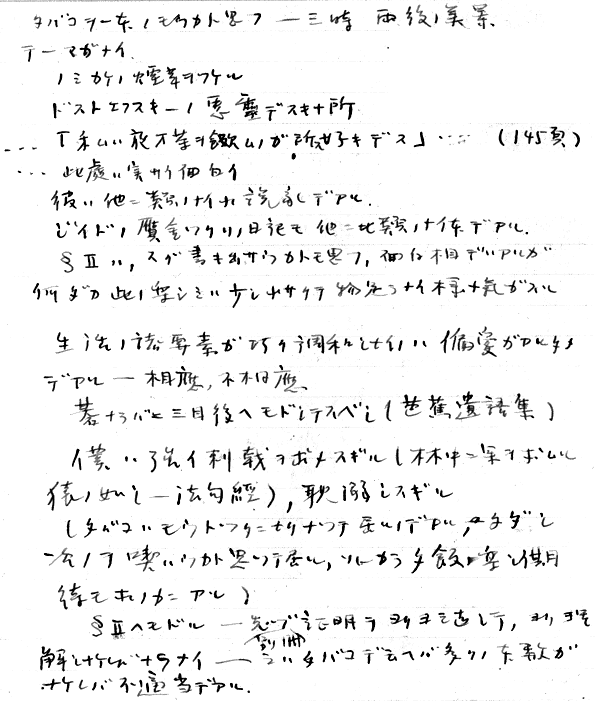 タバコヲ一本ノモウカト思フ — 三時 雨後ノ美景
テーマガナイ.
ノミカケノ煙草ヲツケル
ドストエフスキーノ悪霊デスキナ所
… 「私ハ 放 ガ 好キデス」 … (145頁)
… 此處ハ実ニ 面白イ
彼ハ他ニ類ノナイ小説家デアル.
ジイドノ贋金ツクリノ日記モ他ニ比類ノナイ本デアル.
§Ⅱハ, スグ書キ出サウカトモ思フ, 面白 相デハアルガ
何ダカ此ノ ハ少シ小サクテ物足ラナイ様ナ気ガスル
生活ノ諸要素ガ巧ク調和シナイノハ偏愛ガアルタメ
デアル — 相應, 不相應.
ナラバ 三日後ヘモドシテスベシ (芭蕉遺語集)
僕ハ強イ刺戟ヲ求メスギル (林中ニ果ヲ求ムル
猿ノ如シ — 法句經), 耽溺シスギル
(タバコハモウ ナツテ居ルノデアル, タダ
次ノヲ喫ハウカト思ツテ居ル, ソレカラ夕飯 期
待モホノカニアル)
§Ⅱヘモドル — 先ヅ証明ヲ ヨミ返シテ, ヨリ理
別冊
解シナケレバナラナイ — ハタバコデ云ヘバ多クノ本数ガ
ナケレバ不適当デアル.